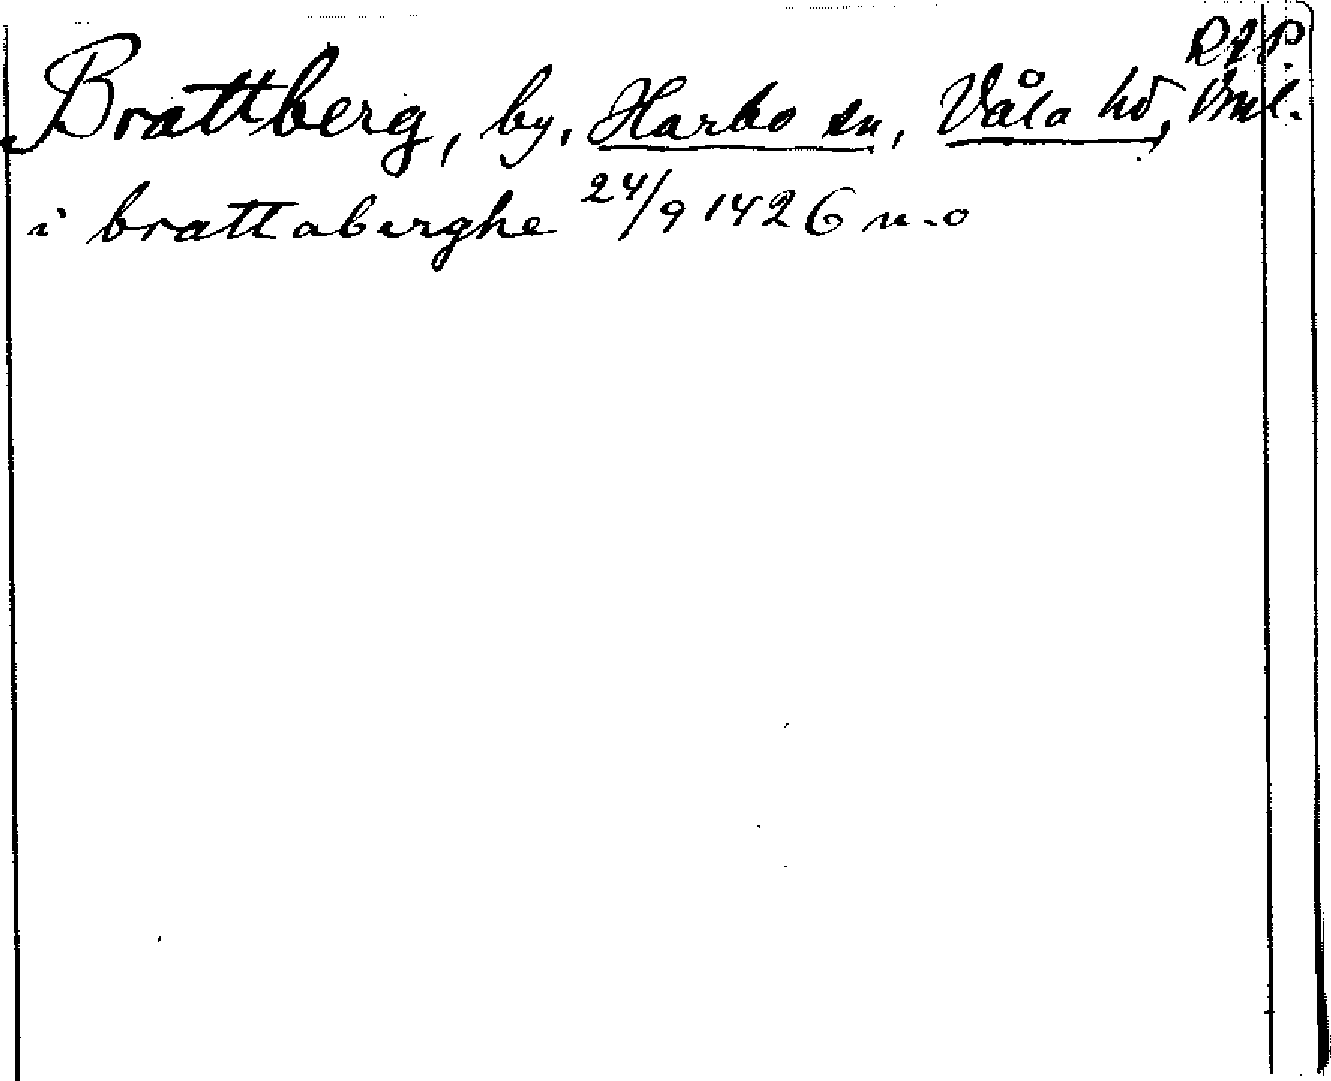 RAP.
Brattberg, by, Harbo sn, Våla hd, Uml.
i brattaberghe 24/9 1426 n-o